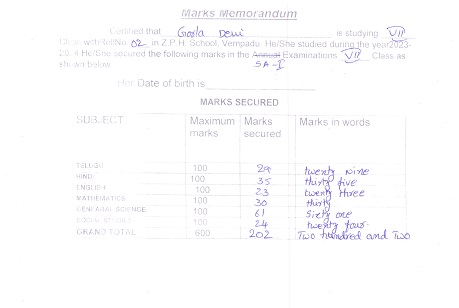 Marks Memorandum
Certified that Gorla Devi is studying VII
Class with Roll No 02 in Z.P.H. School, Vempadu. He/She studied during the year 2023-
2024 He/She secured the following marks in the Annual Examinations VII Class as
shown below SA-I
Her Date of birth is
MARKS SECURED
SUBJECT Maximum marks Marks secured Marks in words
TELUGU 100 29 twenty nine
HINDI 100 35 thirty five
ENGLISH 100 23 twenty three
MATHEMATICS 100 30 thirty
GENERAL SCIENCE 100 61 sixty one
SOCIAL STUDIES 100 24 twenty four
GRAND TOTAL 600 202 Two hundred and Two